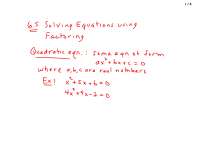 1/8
6.5 Solving Equations using
Factoring
Quadratic eqn.: some eqn of form
ax²+bx+c=0
where a,b,c are real numbers
Ex: x²+5x+6=0
4x²+9x-2=0